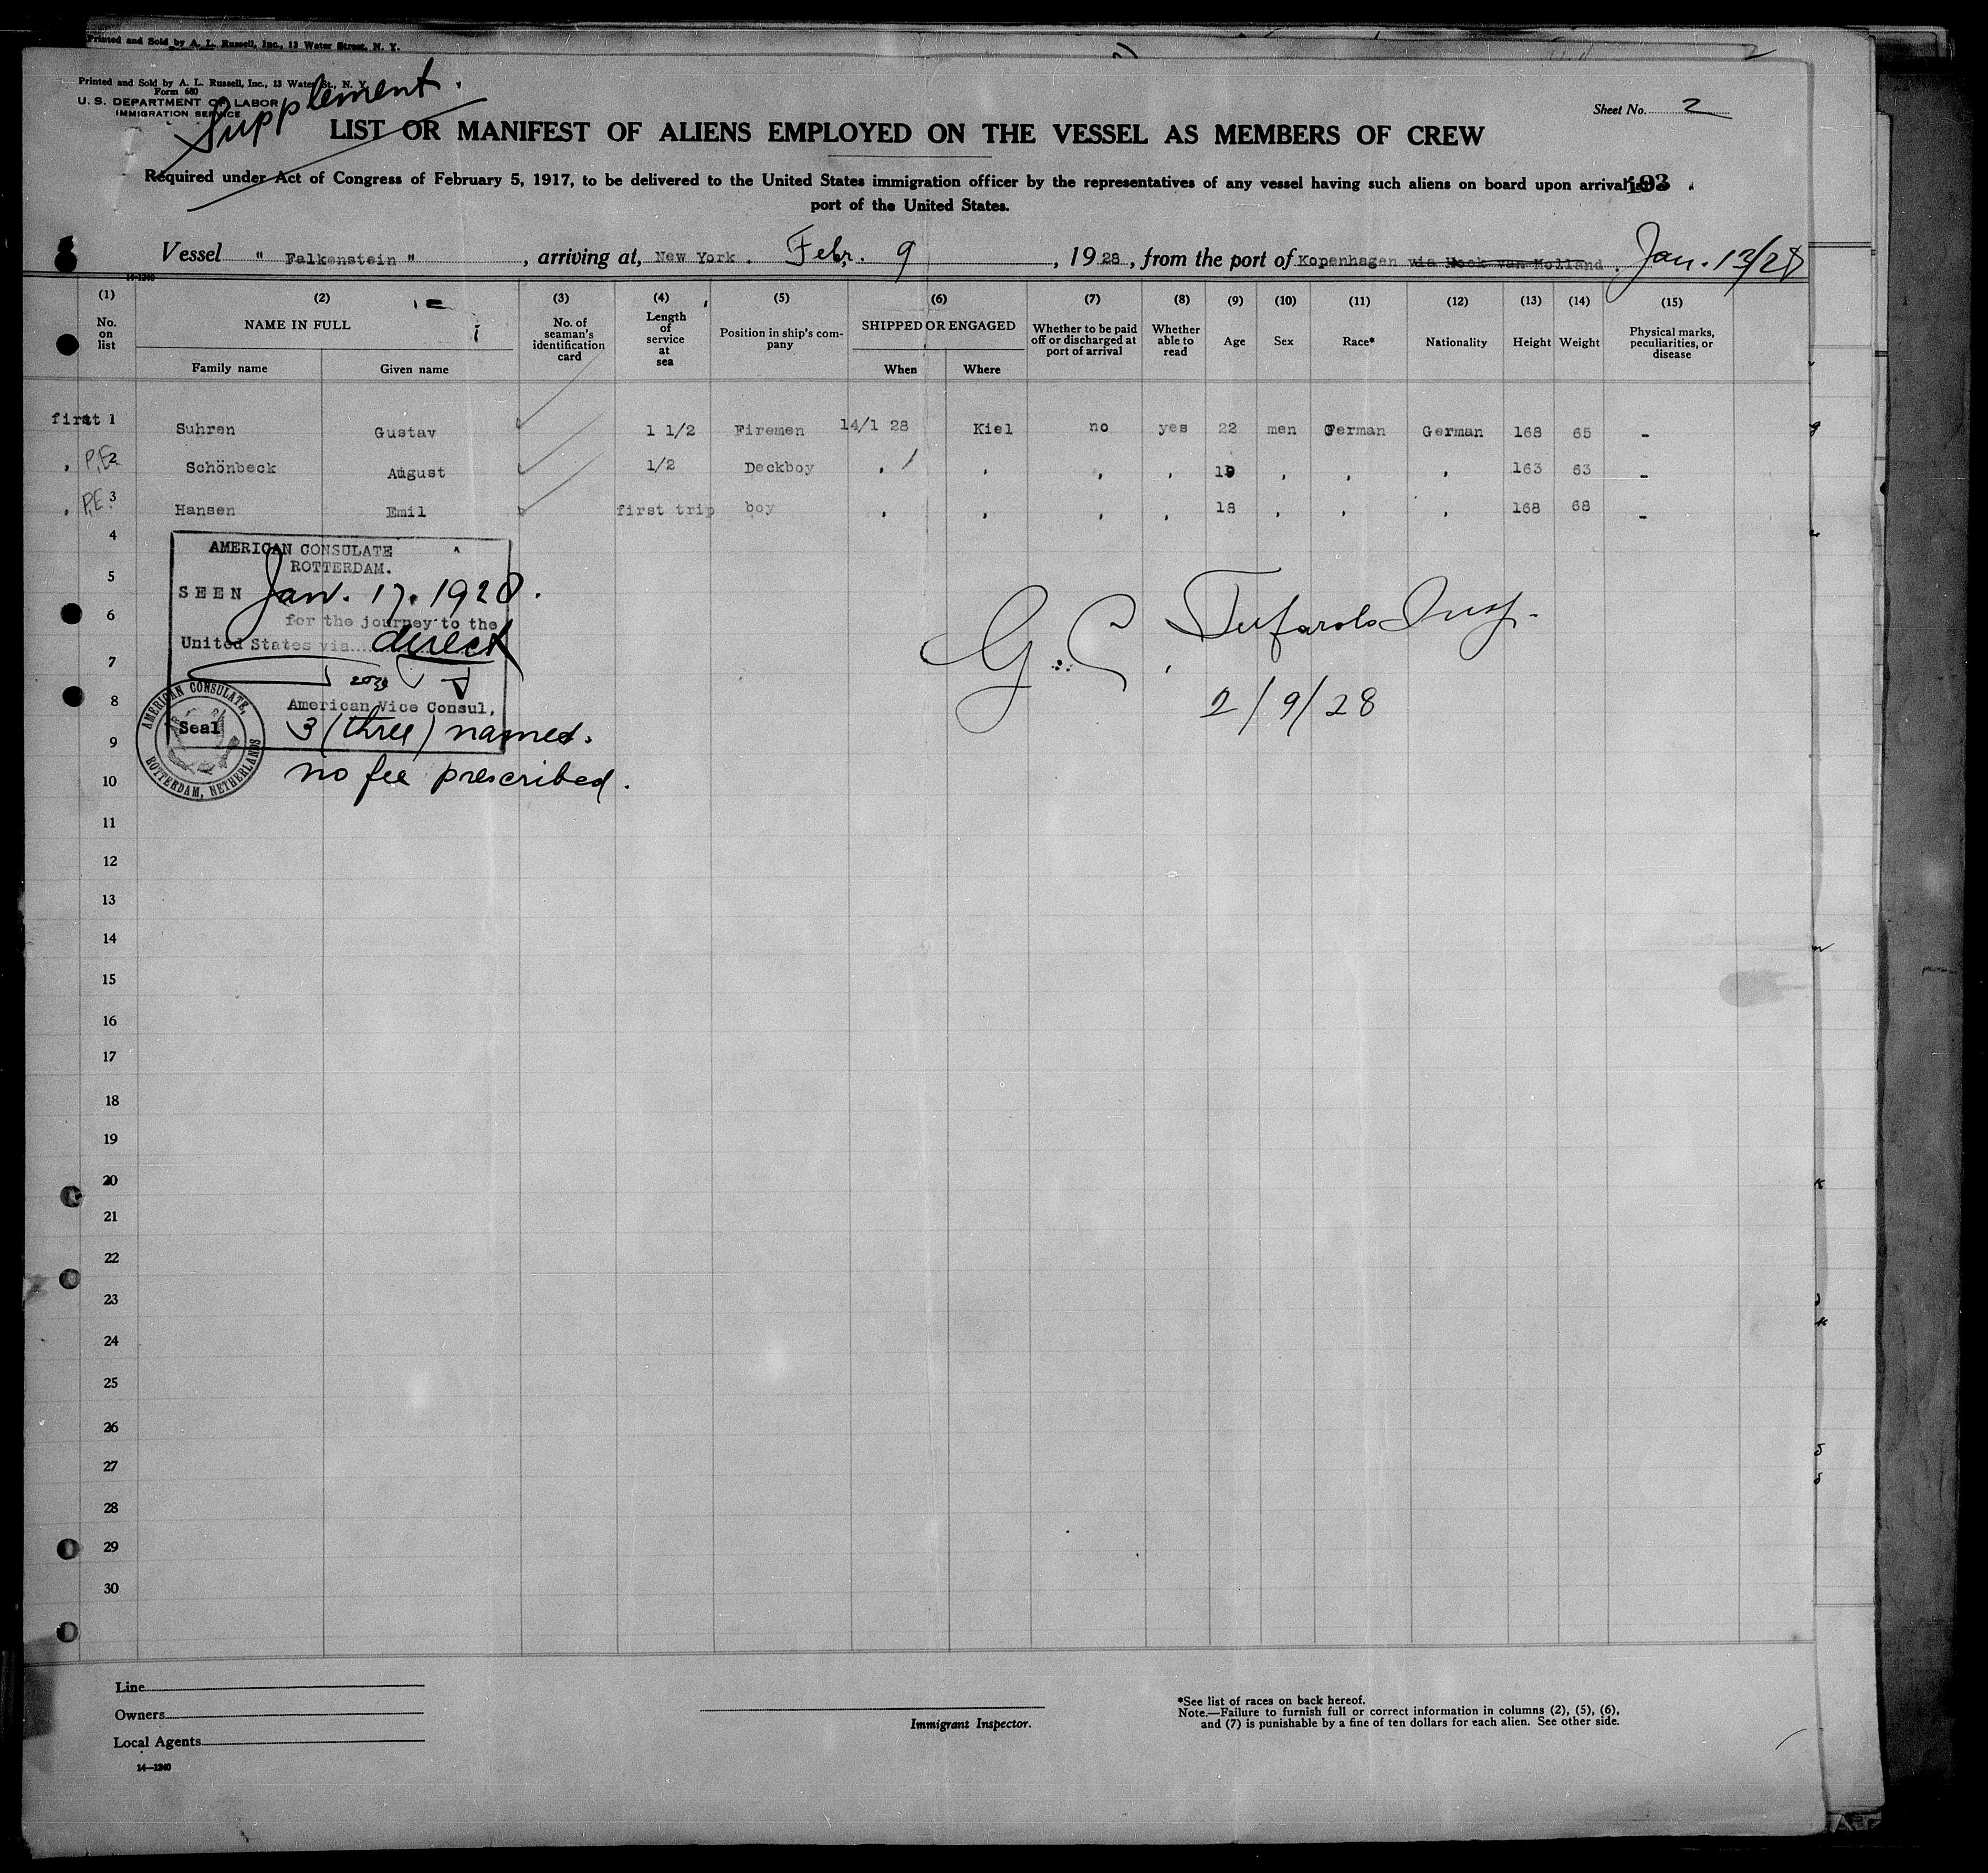 Printed and Sold by A. L. Russell, Inc., 13 Water Street, N. Y.
Printed and Sold by A. L. Russell, Inc., 13 Water St., N. Y.
Form 680
U. S. DEPARTMENT OF LABOR
IMMIGRATION SERVICE
Supplement.
Sheet No. 2
LIST OR MANIFEST OF ALIENS EMPLOYED ON THE VESSEL AS MEMBERS OF CREW
Required under Act of Congress of February 5, 1917, to be delivered to the United States immigration officer by the representatives of any vessel having such aliens on board upon arrival
193
port of the United States.
Vessel " Falkenstein ", arriving at, New York. Febr. 9, 1928, from the port of Kopenhagen via Hock van Holland. Jan. 13/28
14-1240
(1) (2) (3) (4) (5) (6) (7) (8) (9) (10) (11) (12) (13) (14) (15)
No. on list NAME IN FULL No. of seaman's identification card Length of service at sea Position in ship's company SHIPPED OR ENGAGED Whether to be paid off or discharged at port of arrival Whether able to read Age Sex Race* Nationality Height Weight Physical marks, peculiarities, or disease
Family name Given name When Where
first 1 Suhren Gustav 1 1/2 Firemen 14/1 28 Kiel no yes 22 men German German 168 65 -
, P.E. 2 Schönbeck August 1/2 Deckboy , , , , 19 , , , 163 63 -
, P.E. 3 Hansen Emil first trip boy , , , , 18 , , , 168 68 -
4
AMERICAN CONSULATE
ROTTERDAM.
5
SEEN Jan. 17. 1928.
6
for the journey to the
United States via direct
G. C. Insp.
7
8
American Vice Consul,
2/9/28
AMERICAN CONSULATE, ROTTERDAM, NETHERLANDS
Seal
3 (three) names.
9
no fee prescribed.
10
11
12
13
14
15
16
17
18
19
20
21
22
23
24
25
26
27
28
29
30
Line
Owners
Local Agents
14-1240
Immigrant Inspector.
*See list of races on back hereof.
Note.—Failure to furnish full or correct information in columns (2), (5), (6),
and (7) is punishable by a fine of ten dollars for each alien. See other side.